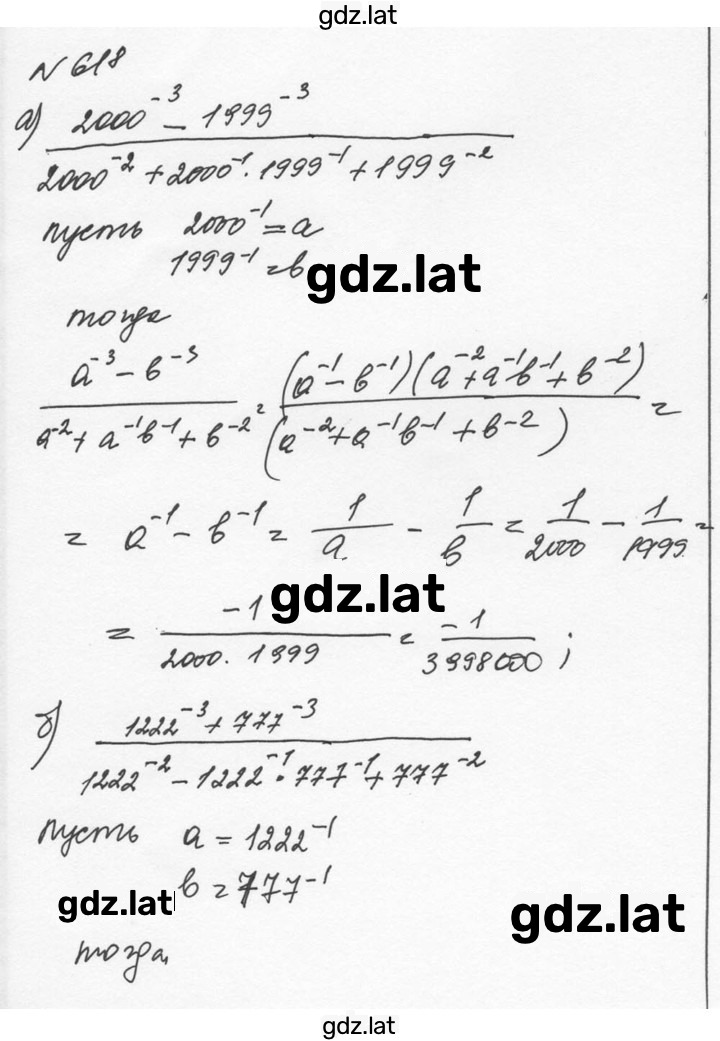 gdz.lat
N 618
а) (2000⁻³ − 1999⁻³) / (2000⁻² + 2000⁻¹ · 1999⁻¹ + 1999⁻²)
пусть 2000⁻¹ = a
1999⁻¹ = b
gdz.lat
тогда
(a⁻³ − b⁻³) / (a⁻² + a⁻¹b⁻¹ + b⁻²) = (a⁻¹ − b⁻¹)(a⁻² + a⁻¹b⁻¹ + b⁻²) / (a⁻² + a⁻¹b⁻¹ + b⁻²) =
= a⁻¹ − b⁻¹ = 1/a − 1/b = 1/2000 − 1/1999 =
gdz.lat
= −1 / (2000 · 1999) = −1 / 3998000 ;
б) (1222⁻³ + 777⁻³) / (1222⁻² − 1222⁻¹ · 777⁻¹ + 777⁻²)
пусть a = 1222⁻¹
b = 777⁻¹
gdz.lat
gdz.lat
тогда
gdz.lat